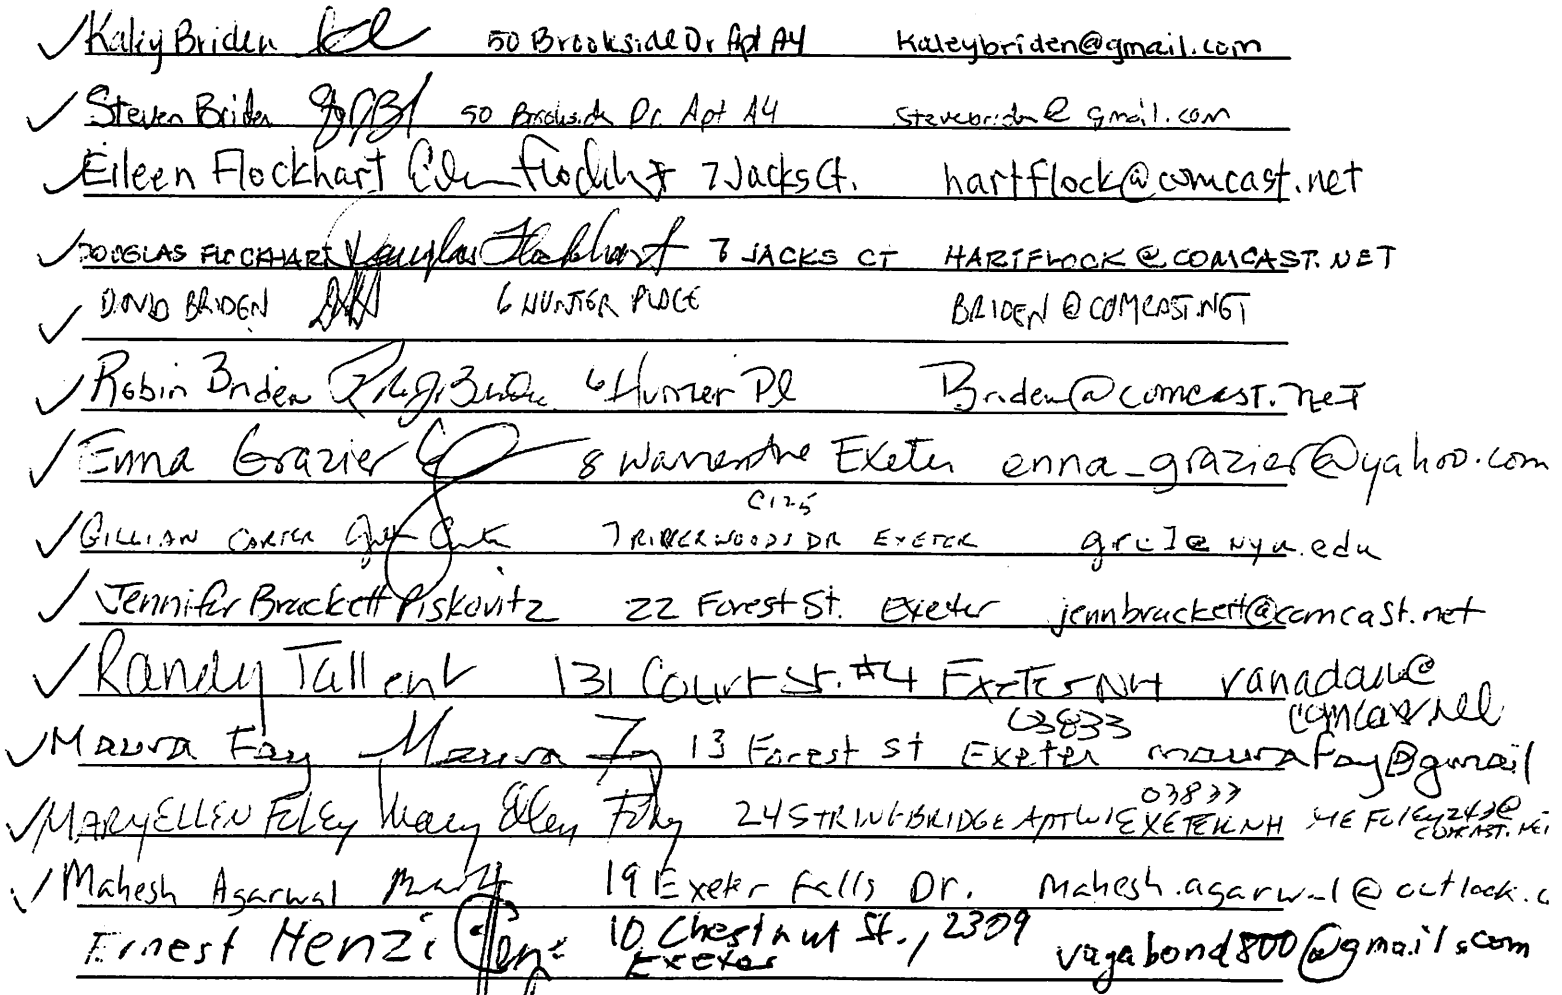 Kaley Briden 50 Brookside Dr Apt A4 Kaleybriden@gmail.com
Steven Briden 50 Brookside Dr. Apt A4 Stevebriden@gmail.com
Eileen Flockhart Eileen Flockhart 7 Jacks Ct. hartflock@comcast.net
DOUGLAS FLOCKHART Douglas Flockhart 7 JACKS CT HARTFLOCK@COMCAST.NET
DAVID BRIDEN 6 HUNTER PLACE BRIDEN@COMCAST.NET
Robin Briden 6 Hunter Pl Briden@comcast.net
Enna Grazier 8 Warren Ave Exeter enna_grazier@yahoo.com
C125
GILLIAN CARTER 7 RIVERWOODS DR EXETER @nyu.edu
Jennifer Brackett Piskovitz 22 Forest St. Exeter jennbrackett@comcast.net
Randy Tallent 131 Court St. #4 Exeter NH
03833
Maura Fay Maura Fay 13 Forest St Exeter maurafay@gmail
03833
MARYELLEN FOLEY Mary Ellen Foley 24 STRINGBRIDGE APT EXETER NH
Mahesh Agarwal 19 Exeter Falls Dr. Mahesh.agarwal@outlook.c
Ernest Henzi 10 Chestnut St., 2309 vagabond800@gmail.com
Exeter